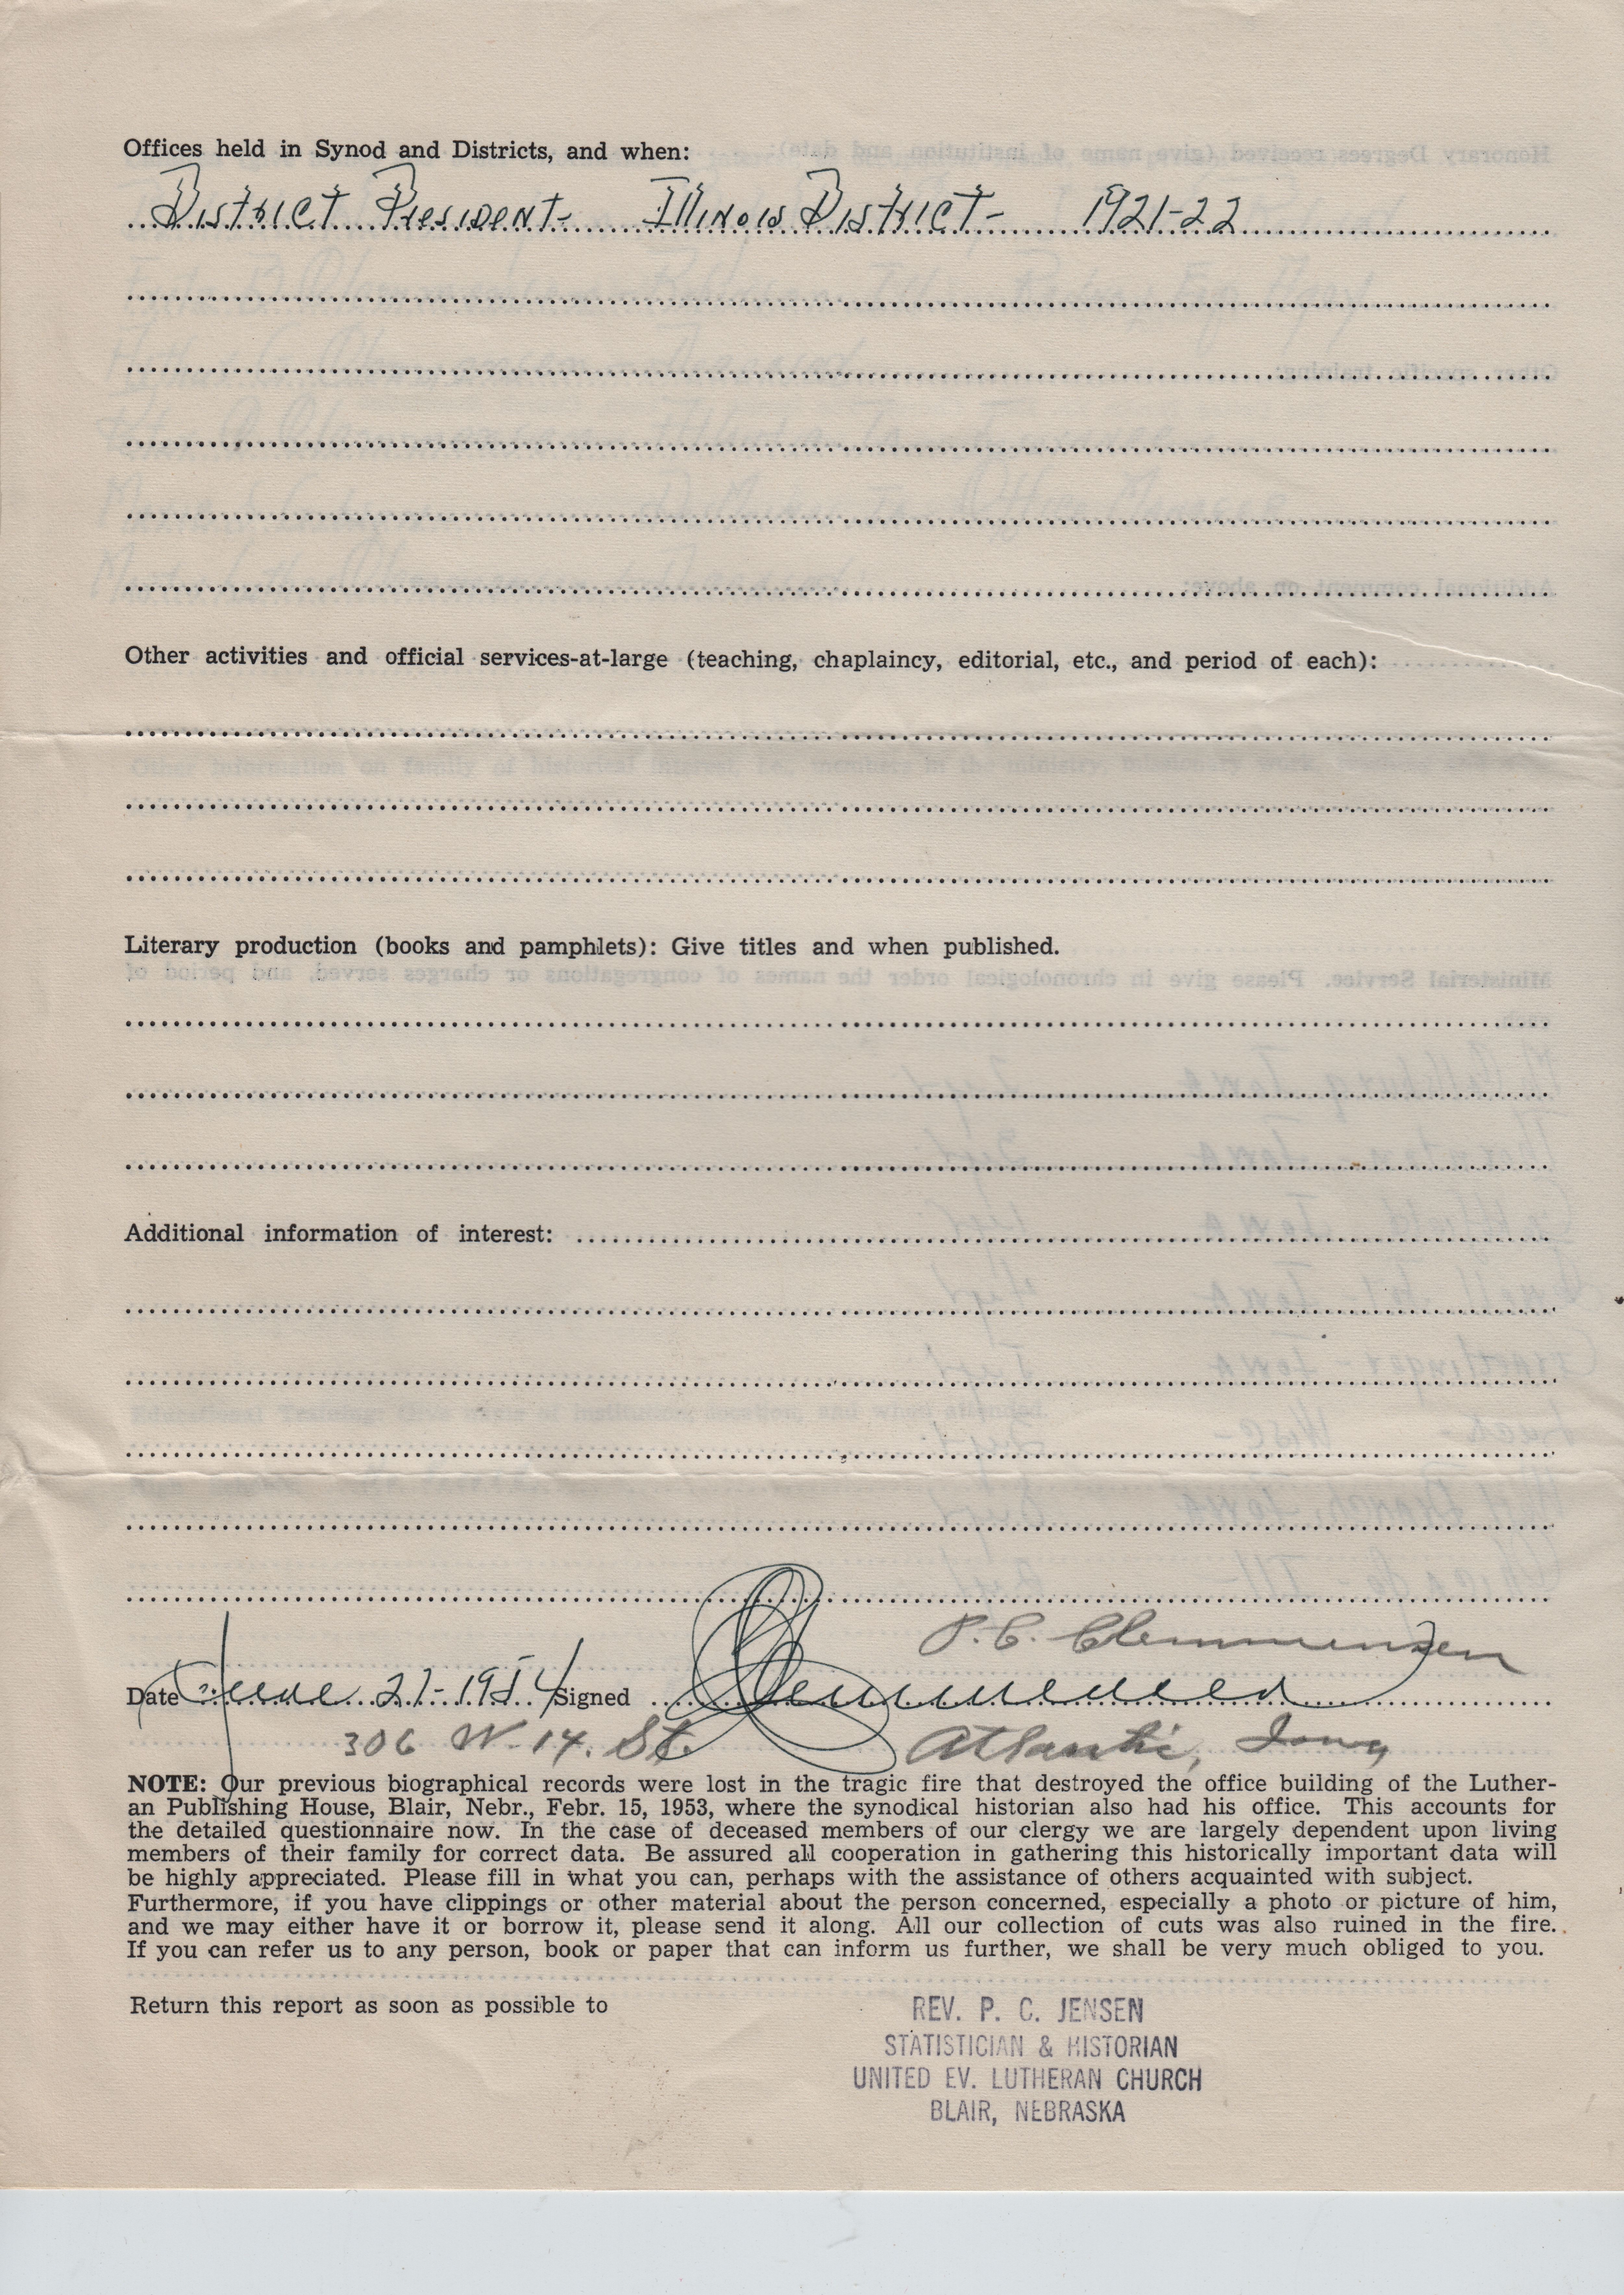 Offices held in Synod and Districts, and when:
District President- Illinois District- 1921-22
Other activities and official services-at-large (teaching, chaplaincy, editorial, etc., and period of each):
Literary production (books and pamphlets): Give titles and when published.
Additional information of interest:
P. C. Clemmensen
Date June 21-1954 Signed Clemmensen
306 W. 14. St. Atlantic, Iowa
NOTE: Our previous biographical records were lost in the tragic fire that destroyed the office building of the Luther-
an Publishing House, Blair, Nebr., Febr. 15, 1953, where the synodical historian also had his office. This accounts for
the detailed questionnaire now. In the case of deceased members of our clergy we are largely dependent upon living
members of their family for correct data. Be assured all cooperation in gathering this historically important data will
be highly appreciated. Please fill in what you can, perhaps with the assistance of others acquainted with subject.
Furthermore, if you have clippings or other material about the person concerned, especially a photo or picture of him,
and we may either have it or borrow it, please send it along. All our collection of cuts was also ruined in the fire.
If you can refer us to any person, book or paper that can inform us further, we shall be very much obliged to you.
Return this report as soon as possible to
REV. P. C. JENSEN
STATISTICIAN & HISTORIAN
UNITED EV. LUTHERAN CHURCH
BLAIR, NEBRASKA